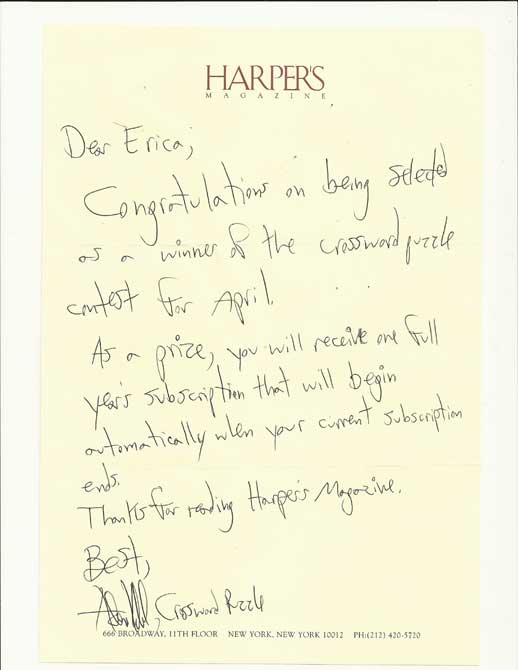 HARPER'S
MAGAZINE
Dear Erica,
Congratulations on being selected
as a winner of the crossword puzzle
contest for April.
As a prize, you will receive one full
year's subscription that will begin
automatically when your current subscription
ends.
Thanks for reading Harper's Magazine.
Best,
, Crossword Puzzle
666 BROADWAY, 11TH FLOOR NEW YORK, NEW YORK 10012 PH:(212) 420-5720